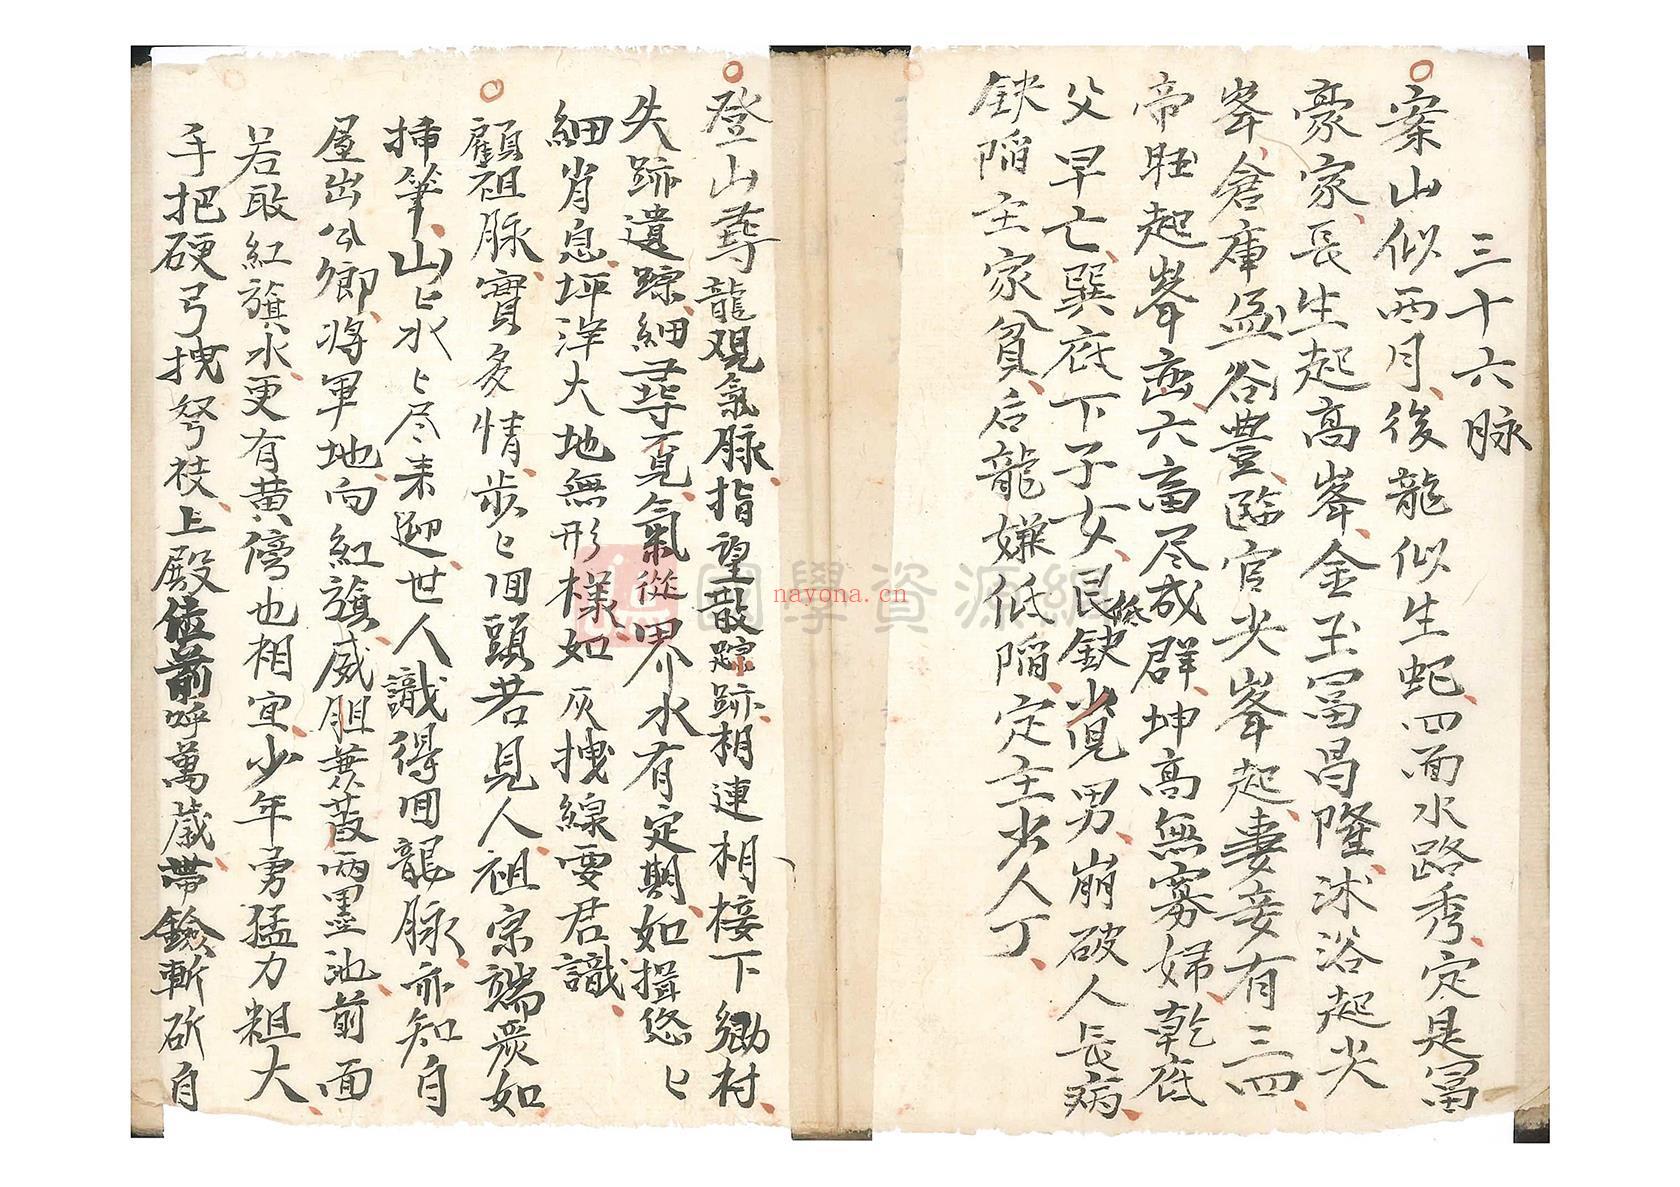 三十六脉
案山似西月後龍似生蛇四面水路秀定是冨
豪家長生起高峯金玉冨昌隆沭浴起尖
峯倉庫盈谷豊臨官尖峯起妻妾有三四
帝旺起峯峦六畜尽成群坤高無寡婦乾底
父早亡巽底下子女艮鈌低少見男崩破人長病
鈌陷主家貧后龍嫌低陷定主少人丁
登山尋龍观氣脉指望散踪跡相連相接下鄉村
失跡遺踪細尋不見氣從界水有定期如揖悠〻
細肖息坪洋大地無形樣如灰拽線要君識
顧祖脉實多情步〻囬頭若見人祖宗端嚴如
挿筆山〻水〻尽来迎世人識得囬龍脉亦知自
屋出公卿将軍地向紅旗威胆兼葭兩墨池前面
若敢紅旗水更有黄傍也相宜少年勇猛力粗大
手把硬弓拽弩枝上殿位前呼萬歲帶鎗斬砍自
國學資源網
nayona.cn